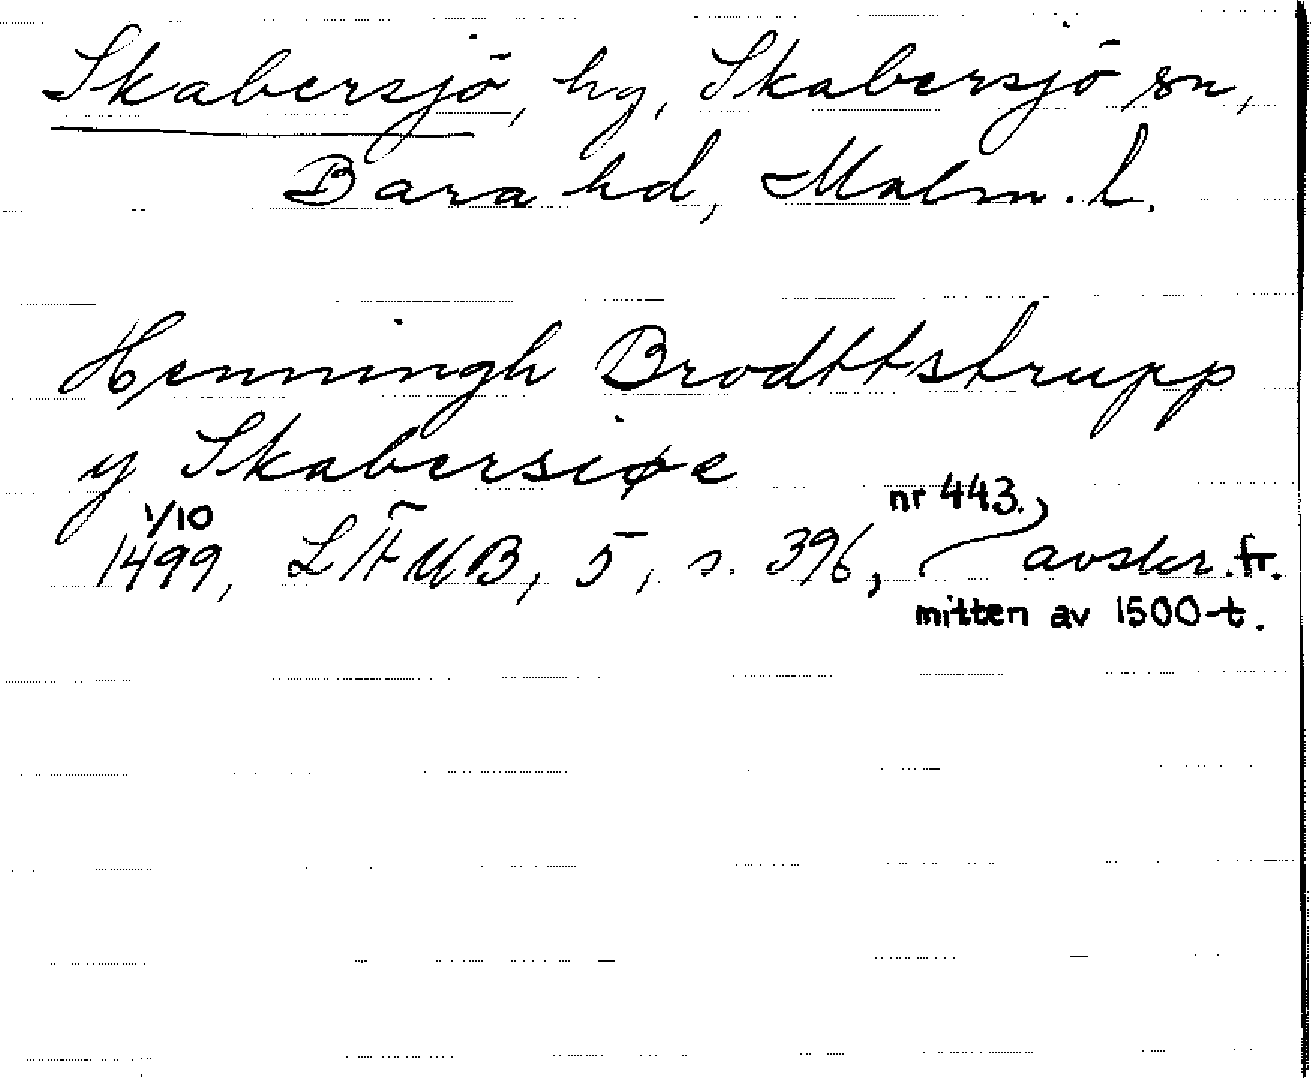 Skabersjö, hg, Skabersjö sn,
Bara hd, Malm. l.
Henningh Brodttstrupp
y Skabersiøe
1/10 nr 443.
1499, LÄUB, 5, s. 396, avskr. fr.
mitten av 1500-t.